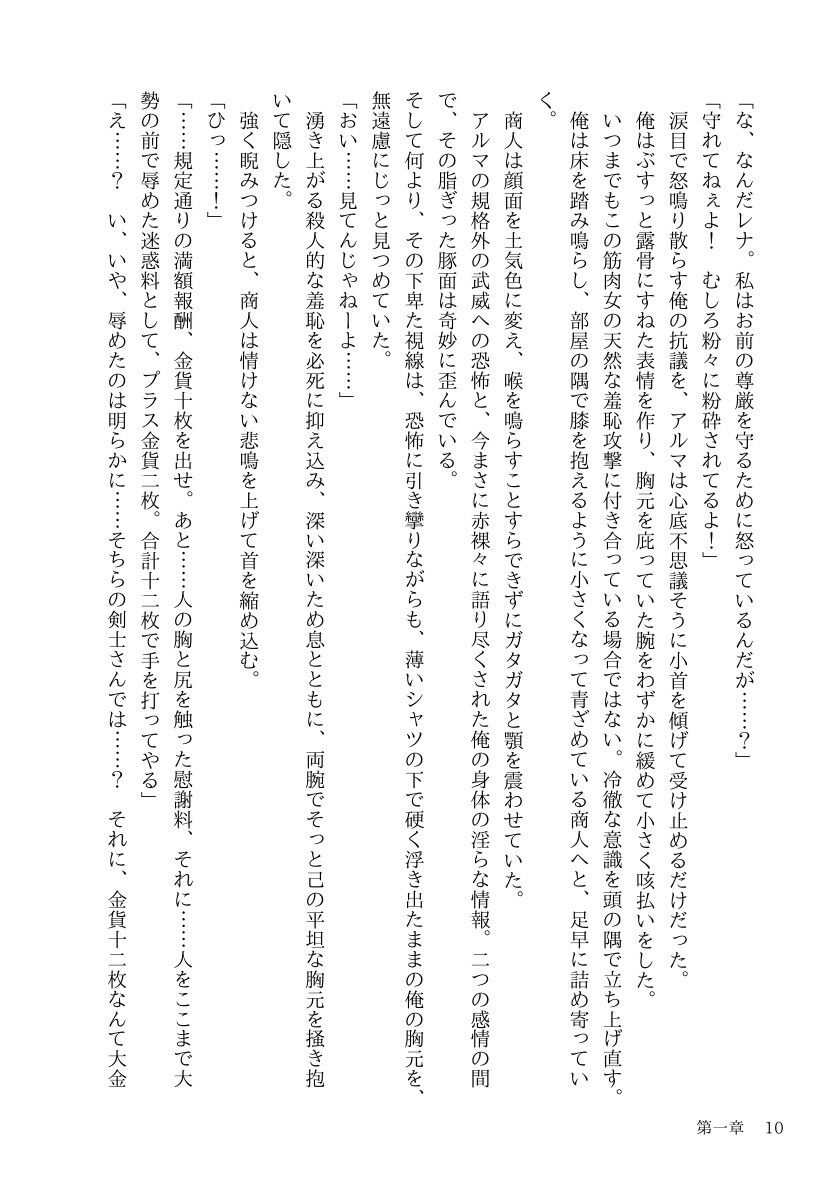 「な、なんだレナ。私はお前の尊厳を守るために怒っているんだが……？」
「守れてねぇよ！　むしろ粉々に粉砕されてるよ！」
涙目で怒鳴り散らす俺の抗議を、アルマは心底不思議そうに小首を傾げて受け止めるだけだった。
俺はぶすっと露骨にすねた表情を作り、胸元を庇っていた腕をわずかに緩めて小さく咳払いをした。
いつまでもこの筋肉女の天然な羞恥攻撃に付き合っている場合ではない。冷徹な意識を頭の隅で立ち上げ直す。
俺は床を踏み鳴らし、部屋の隅で膝を抱えるように小さくなって青ざめている商人へと、足早に詰め寄ってい
く。
商人は顔面を土気色に変え、喉を鳴らすことすらできずにガタガタと顎を震わせていた。
アルマの規格外の武威への恐怖と、今まさに赤裸々に語り尽くされた俺の身体の淫らな情報。二つの感情の間
で、その脂ぎった豚面は奇妙に歪んでいる。
そして何より、その下卑た視線は、恐怖に引き攣りながらも、薄いシャツの下で硬く浮き出たままの俺の胸元を、
無遠慮にじっと見つめていた。
「おい……見てんじゃねーよ……」
湧き上がる殺人的な羞恥を必死に抑え込み、深い深いため息とともに、両腕でそっと己の平坦な胸元を掻き抱
いて隠した。
強く睨みつけると、商人は情けない悲鳴を上げて首を縮め込む。
「ひっ……！」
「……規定通りの満額報酬、金貨十枚を出せ。あと……人の胸と尻を触った慰謝料、それに……人をここまで大
勢の前で辱めた迷惑料として、プラス金貨二枚。合計十二枚で手を打ってやる」
「え……？　い、いや、辱めたのは明らかに……そちらの剣士さんでは……？　それに、金貨十二枚なんて大金
第一章　10